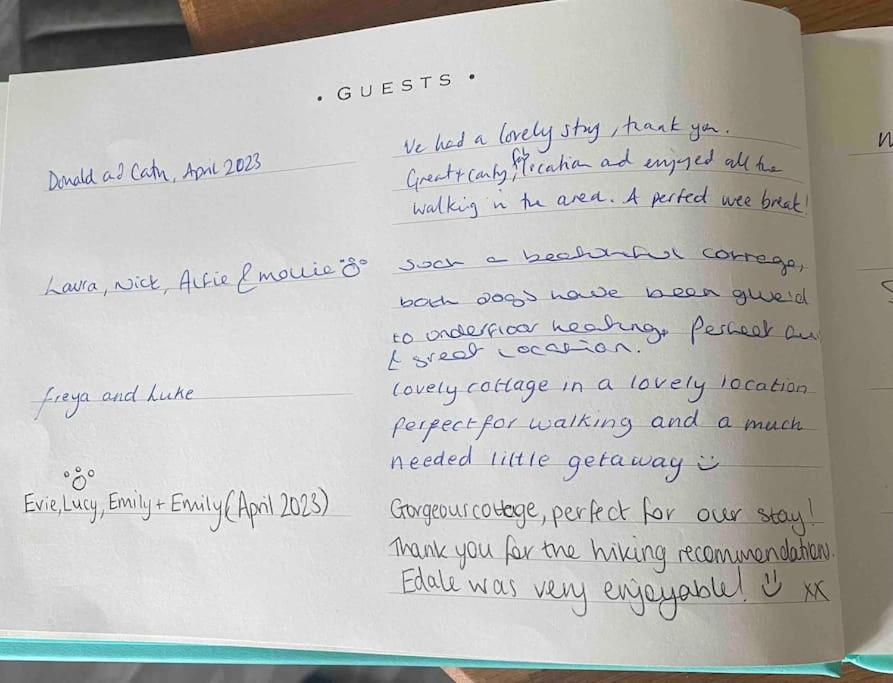 • GUESTS •
Donald ad Cath, April 2023
We had a lovely stay, thank you.
Great + comfy, location ad enjoyed all the
walking in the area. A perfect wee break!
Laura, Nick, Alfie & Mollie
Such a beautiful cottage,
both dogs have been glued
to underfloor heating. Perfect
& great location.
Freya and Luke
Lovely cottage in a lovely location
perfect for walking and a much
needed little getaway
Evie, Lucy, Emily + Emily (April 2023)
Gorgeous cottage, perfect for our stay!
Thank you for the hiking recommendation.
Edale was very enjoyable! xx